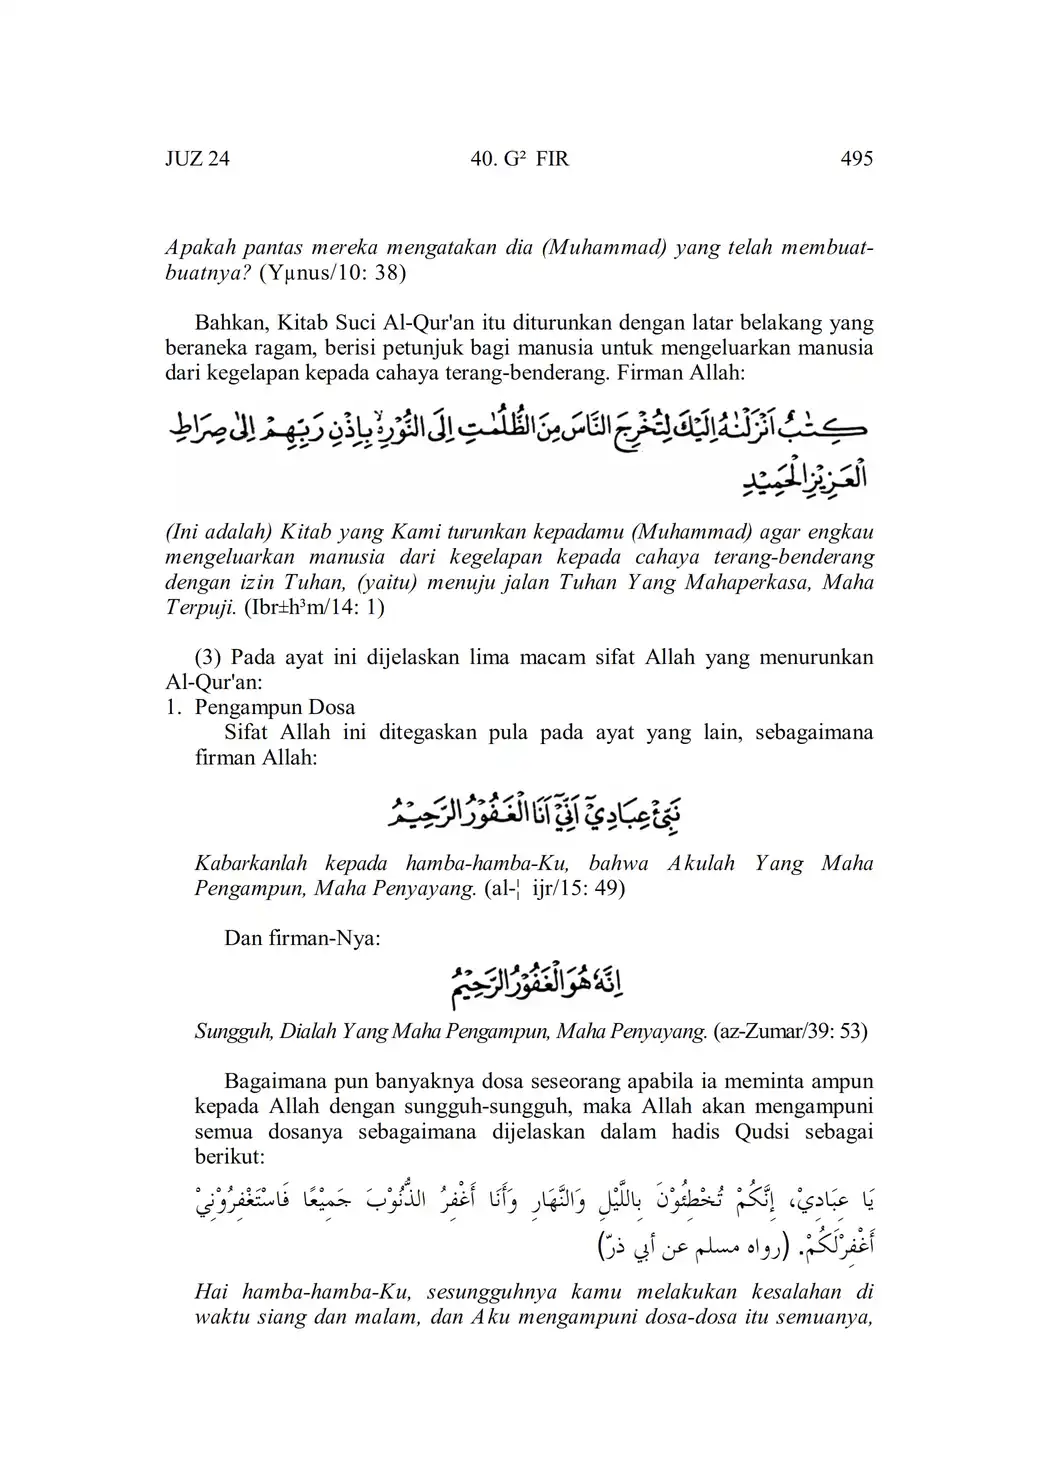 JUZ 24 40. G² FIR 495
Apakah pantas mereka mengatakan dia (Muhammad) yang telah membuat-
buatnya? (Yµnus/10: 38)
Bahkan, Kitab Suci Al-Qur'an itu diturunkan dengan latar belakang yang
beraneka ragam, berisi petunjuk bagi manusia untuk mengeluarkan manusia
dari kegelapan kepada cahaya terang-benderang. Firman Allah:
كِتٰبٌ اَنْزَلْنٰهُ اِلَيْكَ لِتُخْرِجَ النَّاسَ مِنَ الظُّلُمٰتِ اِلَى النُّوْرِ ەۙ بِاِذْنِ رَبِّهِمْ اِلٰى صِرَاطِ
الْعَزِيْزِ الْحَمِيْدِ
(Ini adalah) Kitab yang Kami turunkan kepadamu (Muhammad) agar engkau
mengeluarkan manusia dari kegelapan kepada cahaya terang-benderang
dengan izin Tuhan, (yaitu) menuju jalan Tuhan Yang Mahaperkasa, Maha
Terpuji. (Ibr±h³m/14: 1)
(3) Pada ayat ini dijelaskan lima macam sifat Allah yang menurunkan
Al-Qur'an:
1. Pengampun Dosa
Sifat Allah ini ditegaskan pula pada ayat yang lain, sebagaimana
firman Allah:
نَبِّئْ عِبَادِيْٓ اَنِّيْٓ اَنَا الْغَفُوْرُ الرَّحِيْمُ
Kabarkanlah kepada hamba-hamba-Ku, bahwa Akulah Yang Maha
Pengampun, Maha Penyayang. (al-¦ ijr/15: 49)
Dan firman-Nya:
اِنَّهٗ هُوَ الْغَفُوْرُ الرَّحِيْمُ
Sungguh, Dialah Yang Maha Pengampun, Maha Penyayang. (az-Zumar/39: 53)
Bagaimana pun banyaknya dosa seseorang apabila ia meminta ampun
kepada Allah dengan sungguh-sungguh, maka Allah akan mengampuni
semua dosanya sebagaimana dijelaskan dalam hadis Qudsi sebagai
berikut:
يَا عِبَادِيْ، إِنَّكُمْ تُخْطِئُوْنَ بِاللَّيْلِ وَالنَّهَارِ وَأَنَا أَغْفِرُ الذُّنُوْبَ جَمِيْعًا فَاسْتَغْفِرُوْنِيْ
أَغْفِرْلَكُمْ. (رواه مسلم عن أبي ذرّ)
Hai hamba-hamba-Ku, sesungguhnya kamu melakukan kesalahan di
waktu siang dan malam, dan Aku mengampuni dosa-dosa itu semuanya,